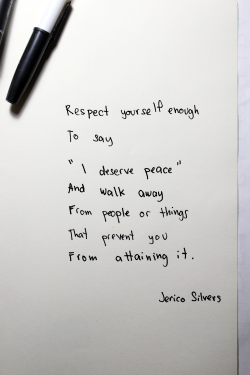 Respect yourself enough
To say
"I deserve peace"
And walk away
From people or things
That prevent you
From attaining it.
Jerico Silvers